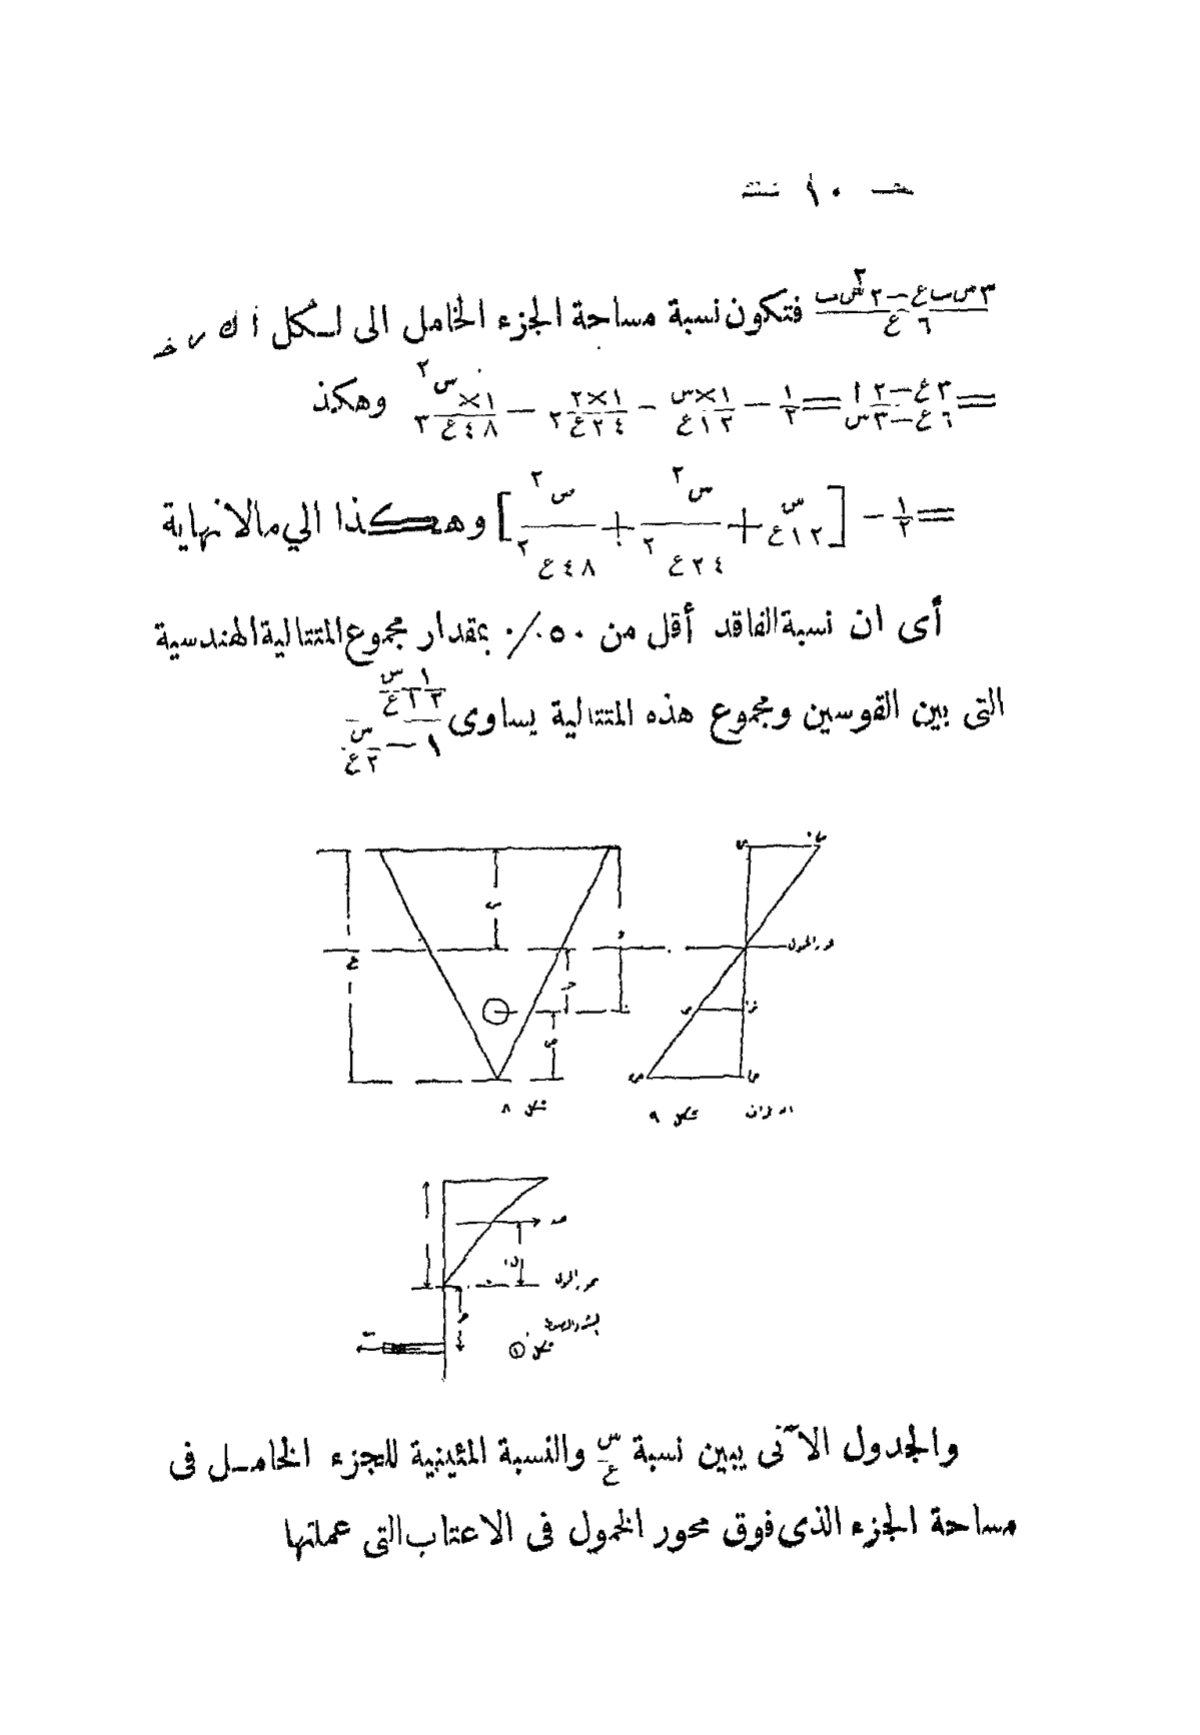 — ١٠ —
٣ س ب ع − ٢ س٢ ب / ٦ ع فتكون نسبة مساحة الجزء الخامل الى لسكل أ ك
= ٣ع − ٢ / ٦ع − ٣س = ١/٢ − ١×س / ١٢ع − ١×٢ / ٢٤ع٢ − ١×س٢ / ٤٨ع٣ وهكذ
= ١/٢ − [س / ١٢ع + س٢ / ٢٤ع٢ + س٢ / ٤٨ع٢] وهكذا الي مالانهاية
أى ان نسبة الفاقد أقل من ٥٠ ٠/٠ بمقدار مجموع المتتالية الهندسية
التى بين القوسين ومجموع هذه المتتالية يساوى
س
محور الخمول
ع
شكل ٨
شكل ٩
محور الخمول
شكل ١٠
والجدول الآتى يبين نسبة س/ع والنسبة المئينية للجزء الخامل فى
مساحة الجزء الذى فوق محور الخمول فى الاعتاب التى عملتها